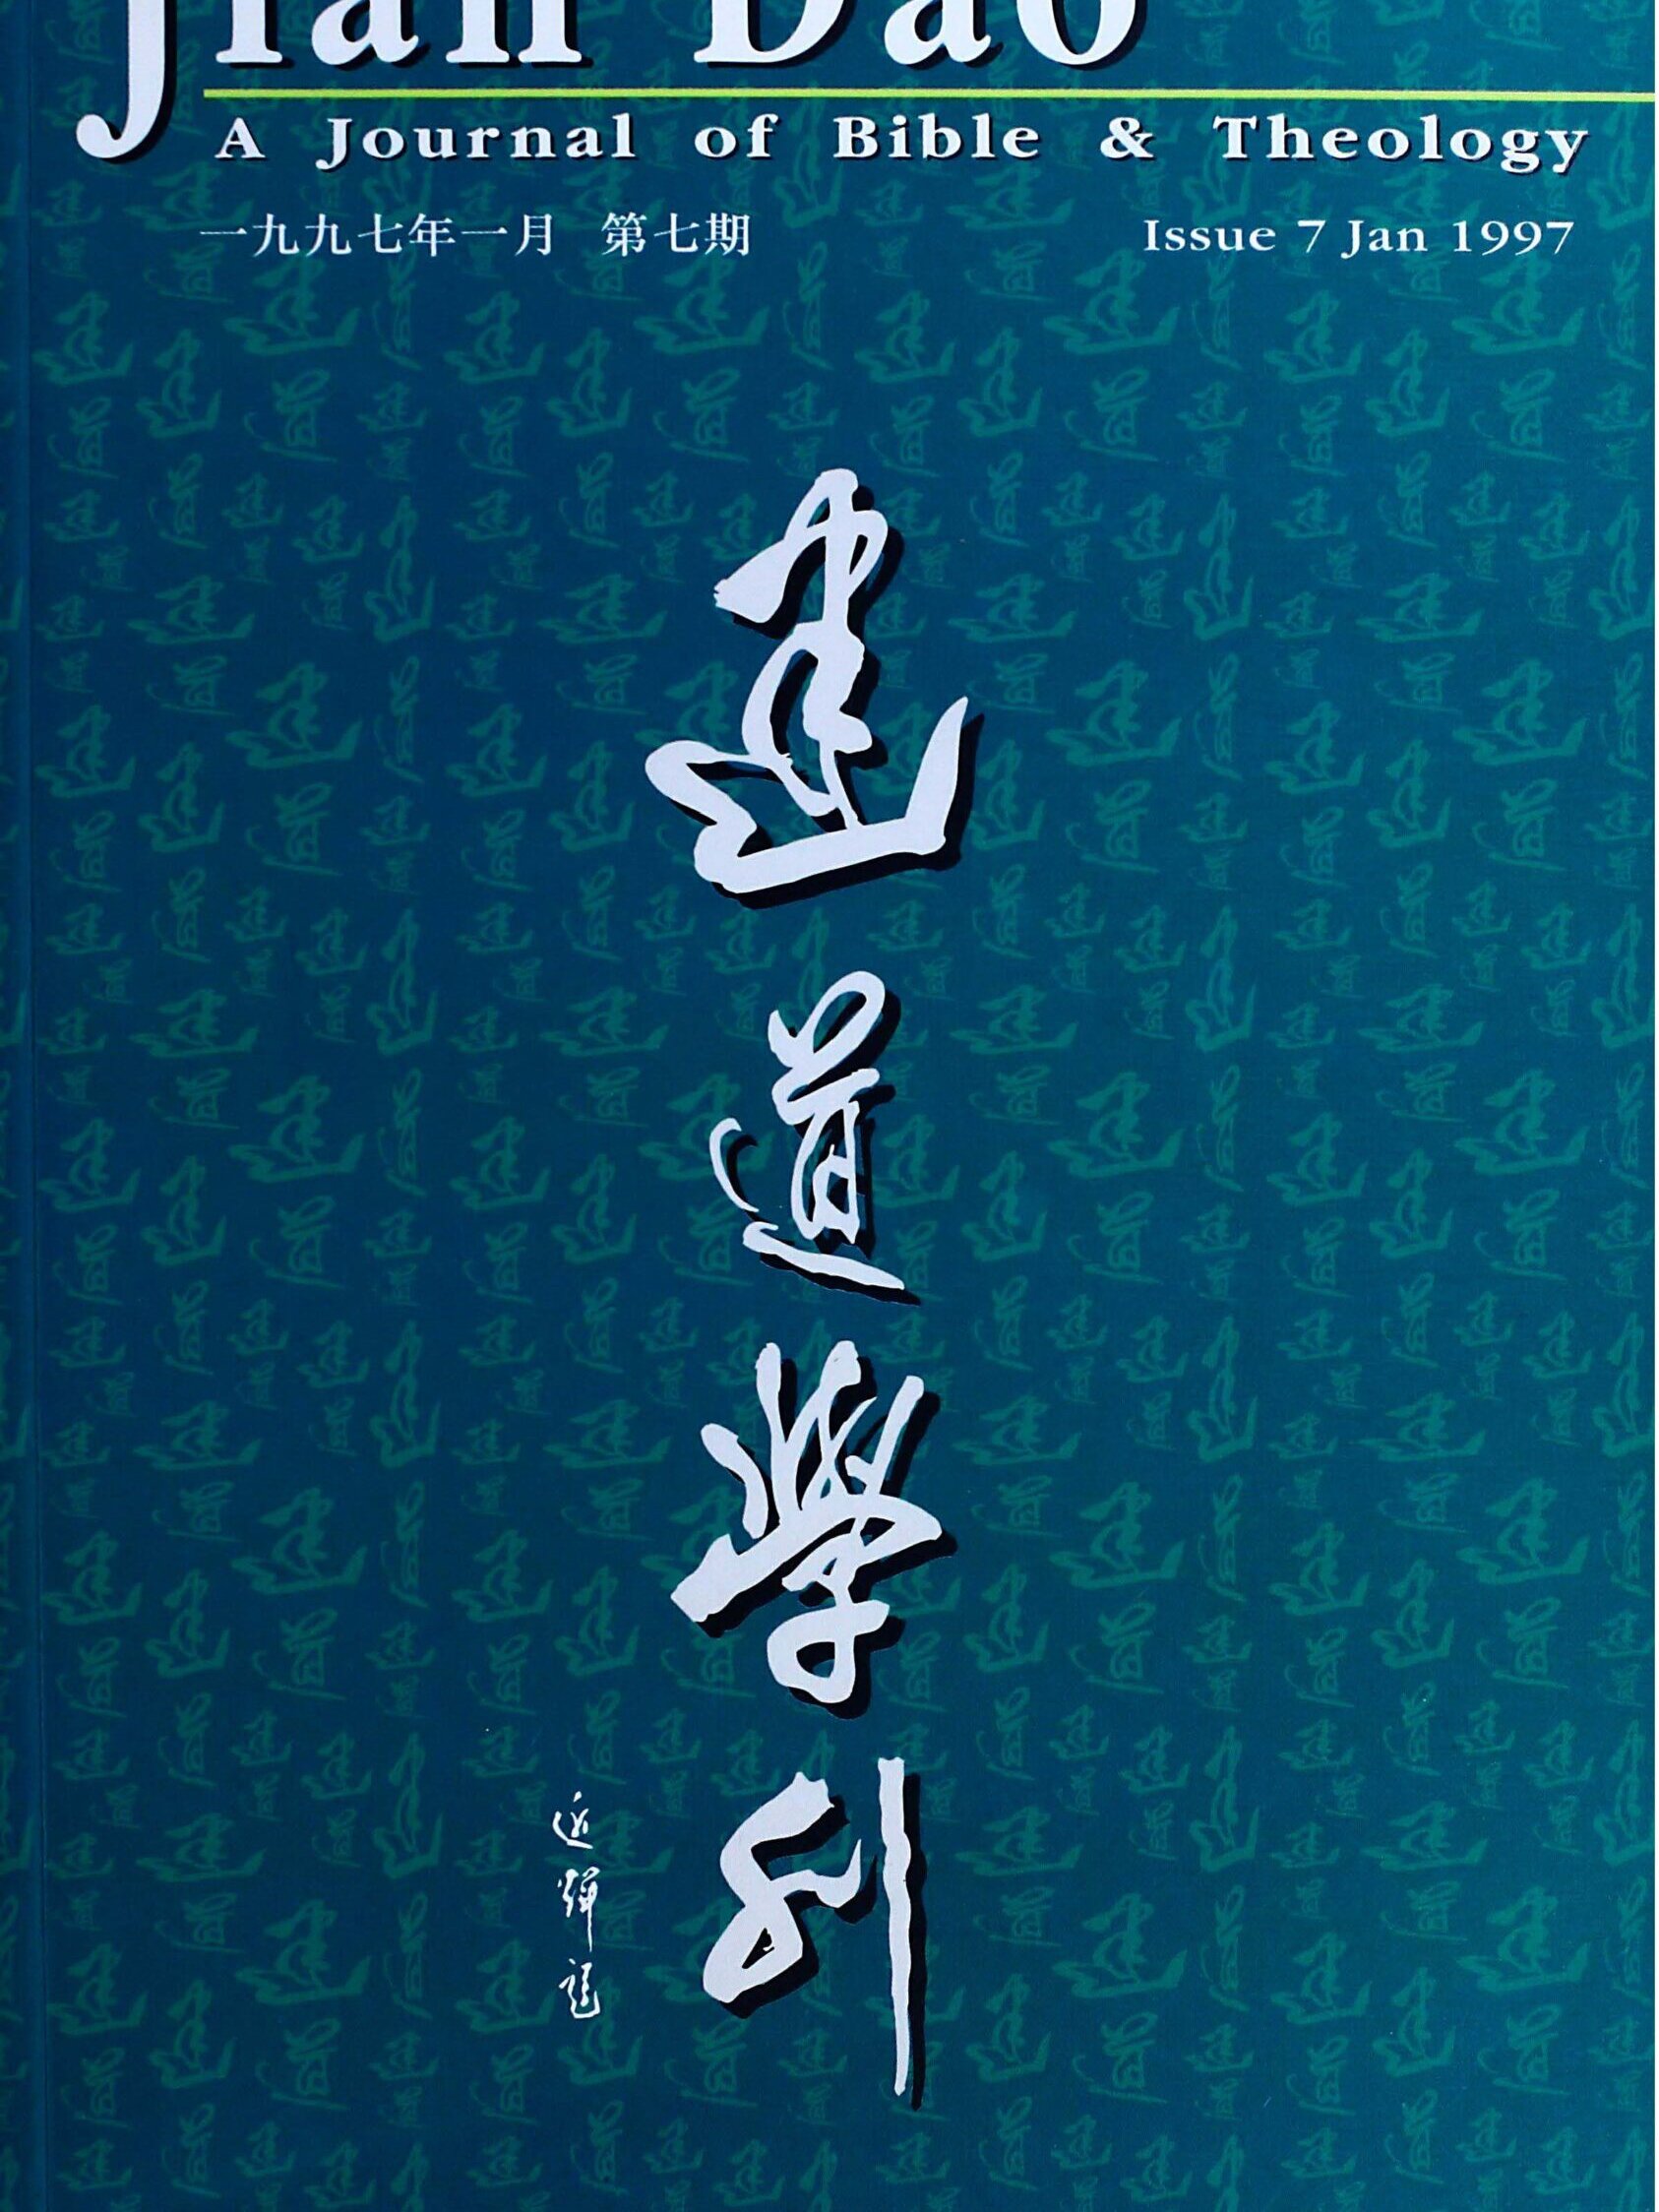 Jian Dao
A Journal of Bible & Theology
一九九七年一月 第七期
Issue 7 Jan 1997
建道學刊